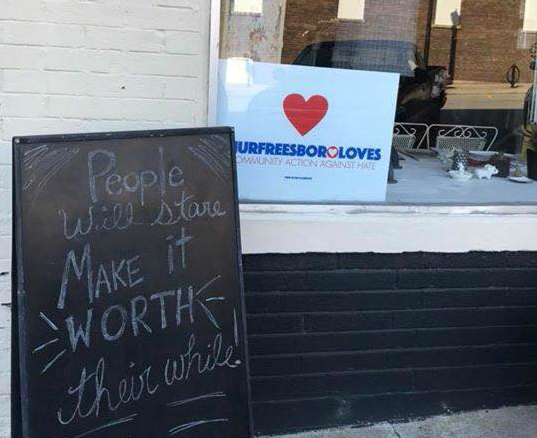 People
will stare
MAKE it
WORTH
their while!
URFREESBORO LOVES
OMMUNITY ACTION AGAINST HATE